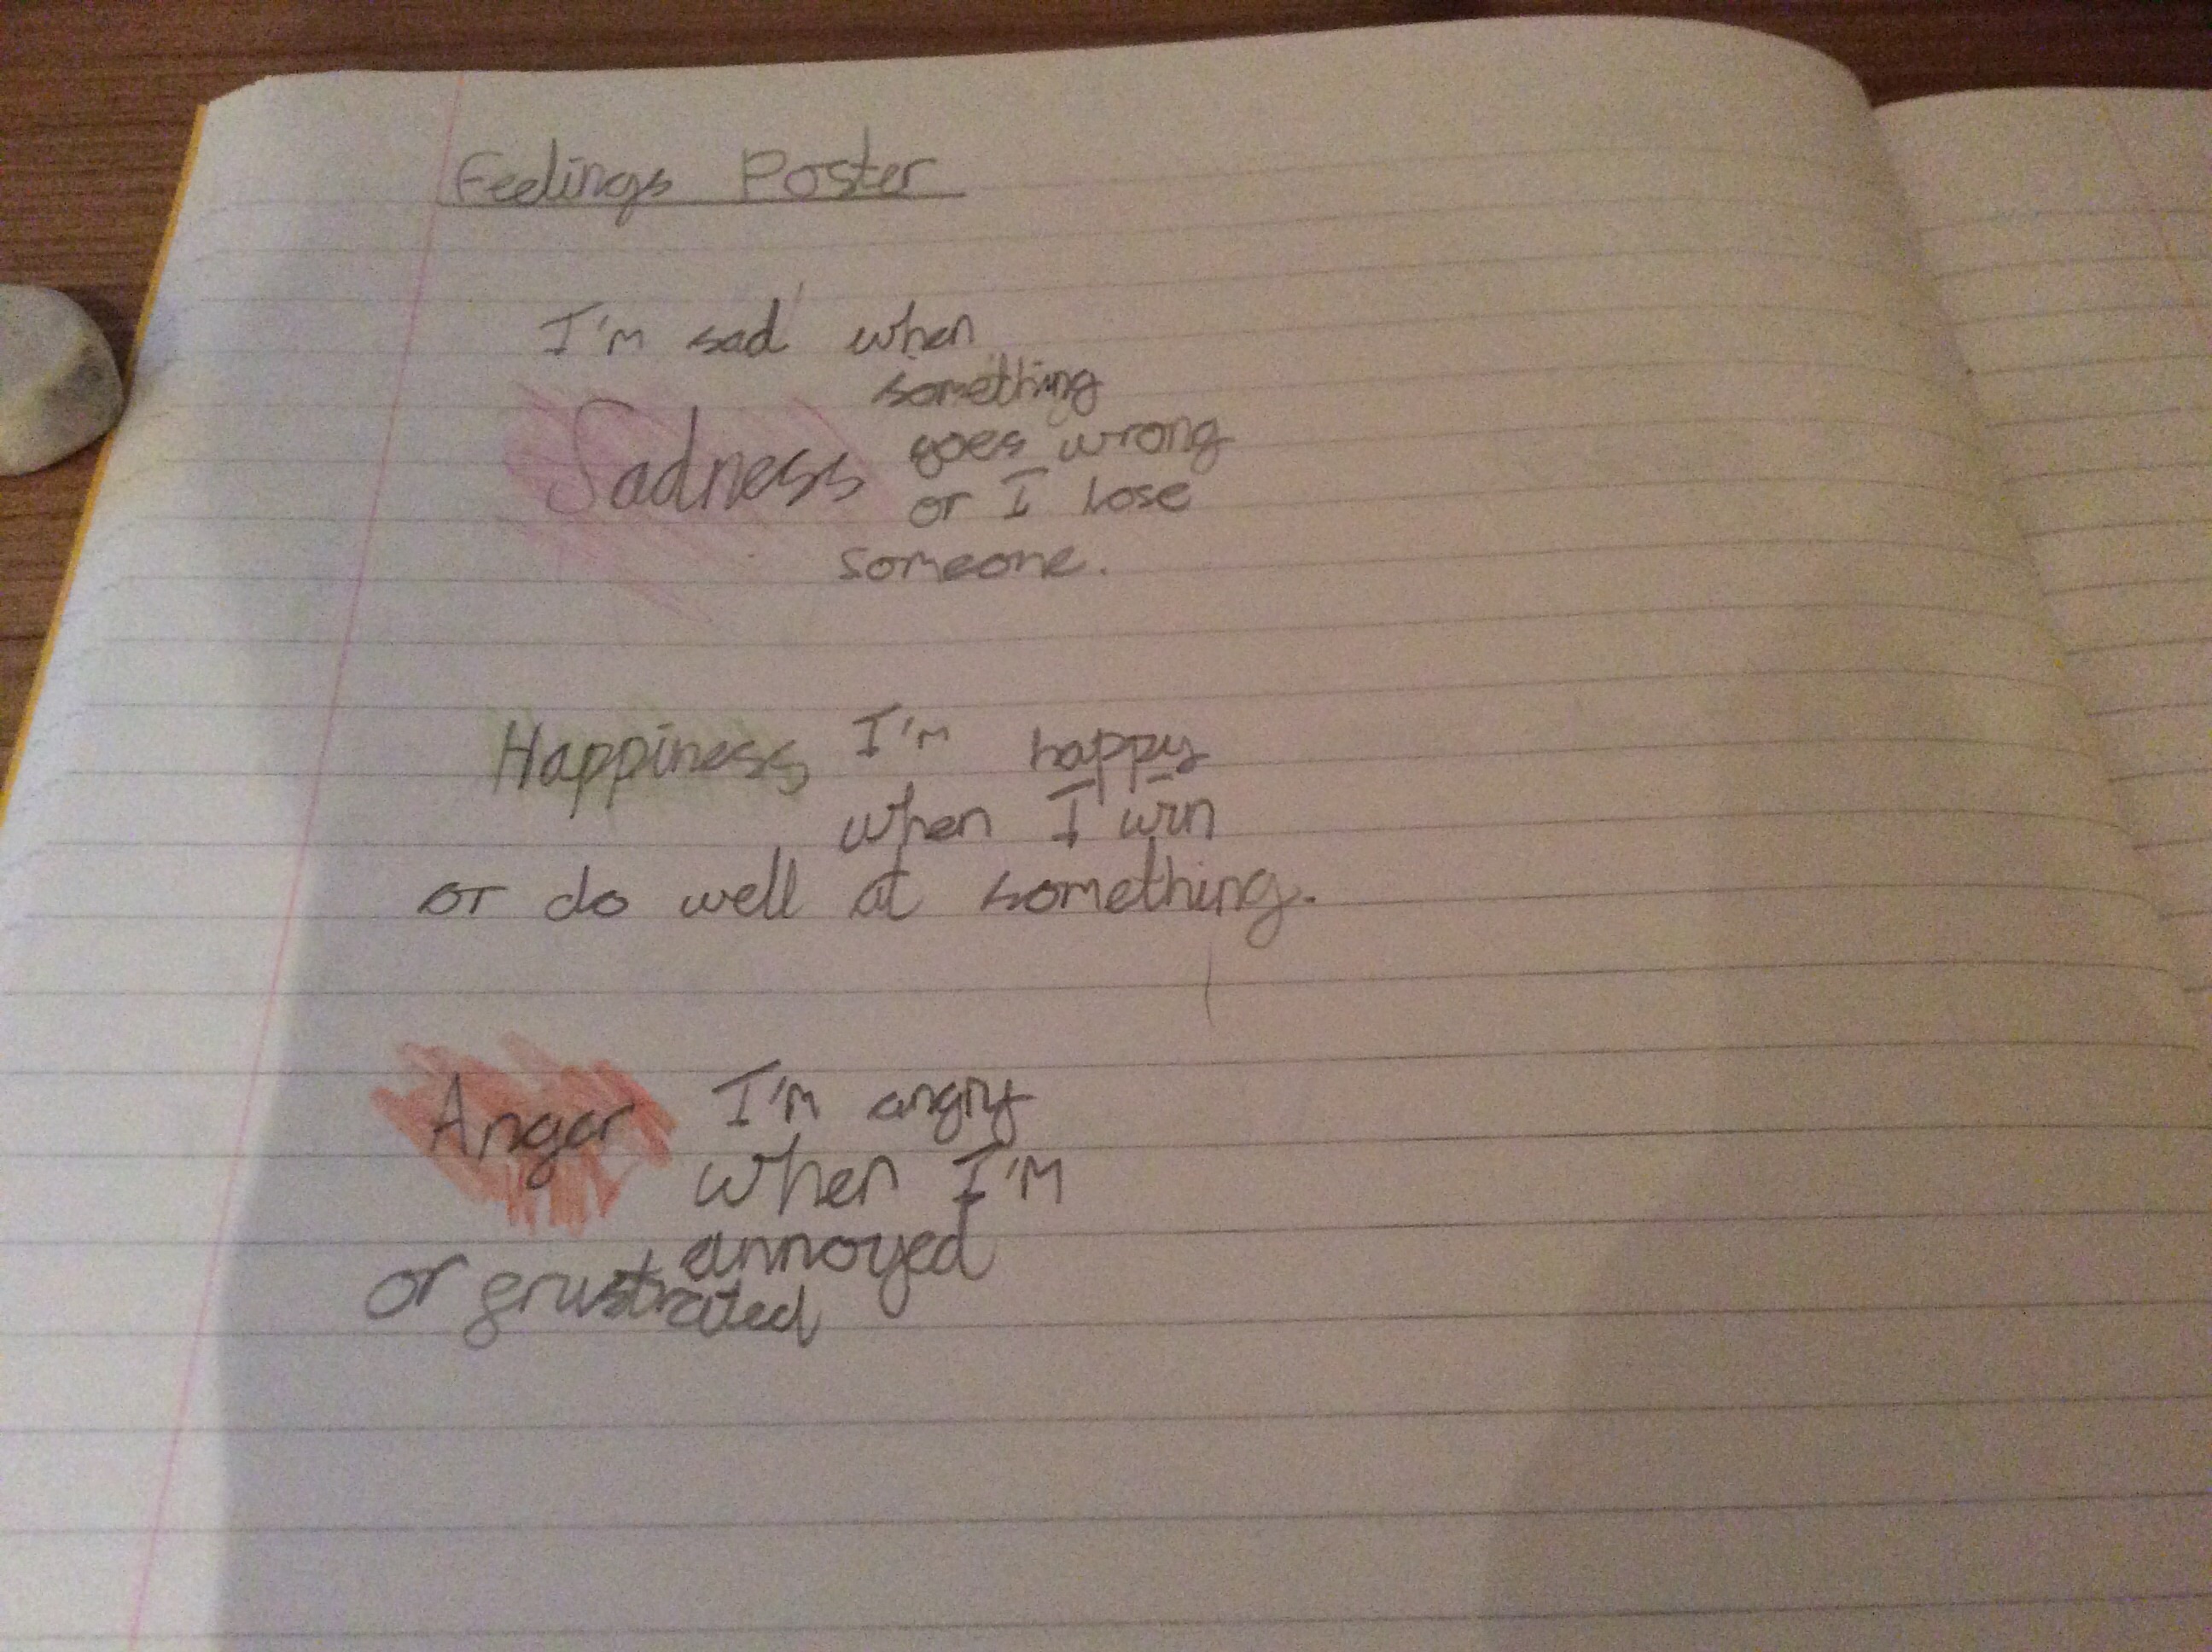 Feelings Poster
I'm sad when
something
Sadness goes wrong
or I lose
someone.
Happiness I'm happy
when I win
or do well at something.
Anger I'm angry
when I'm
annoyed
or grustrated